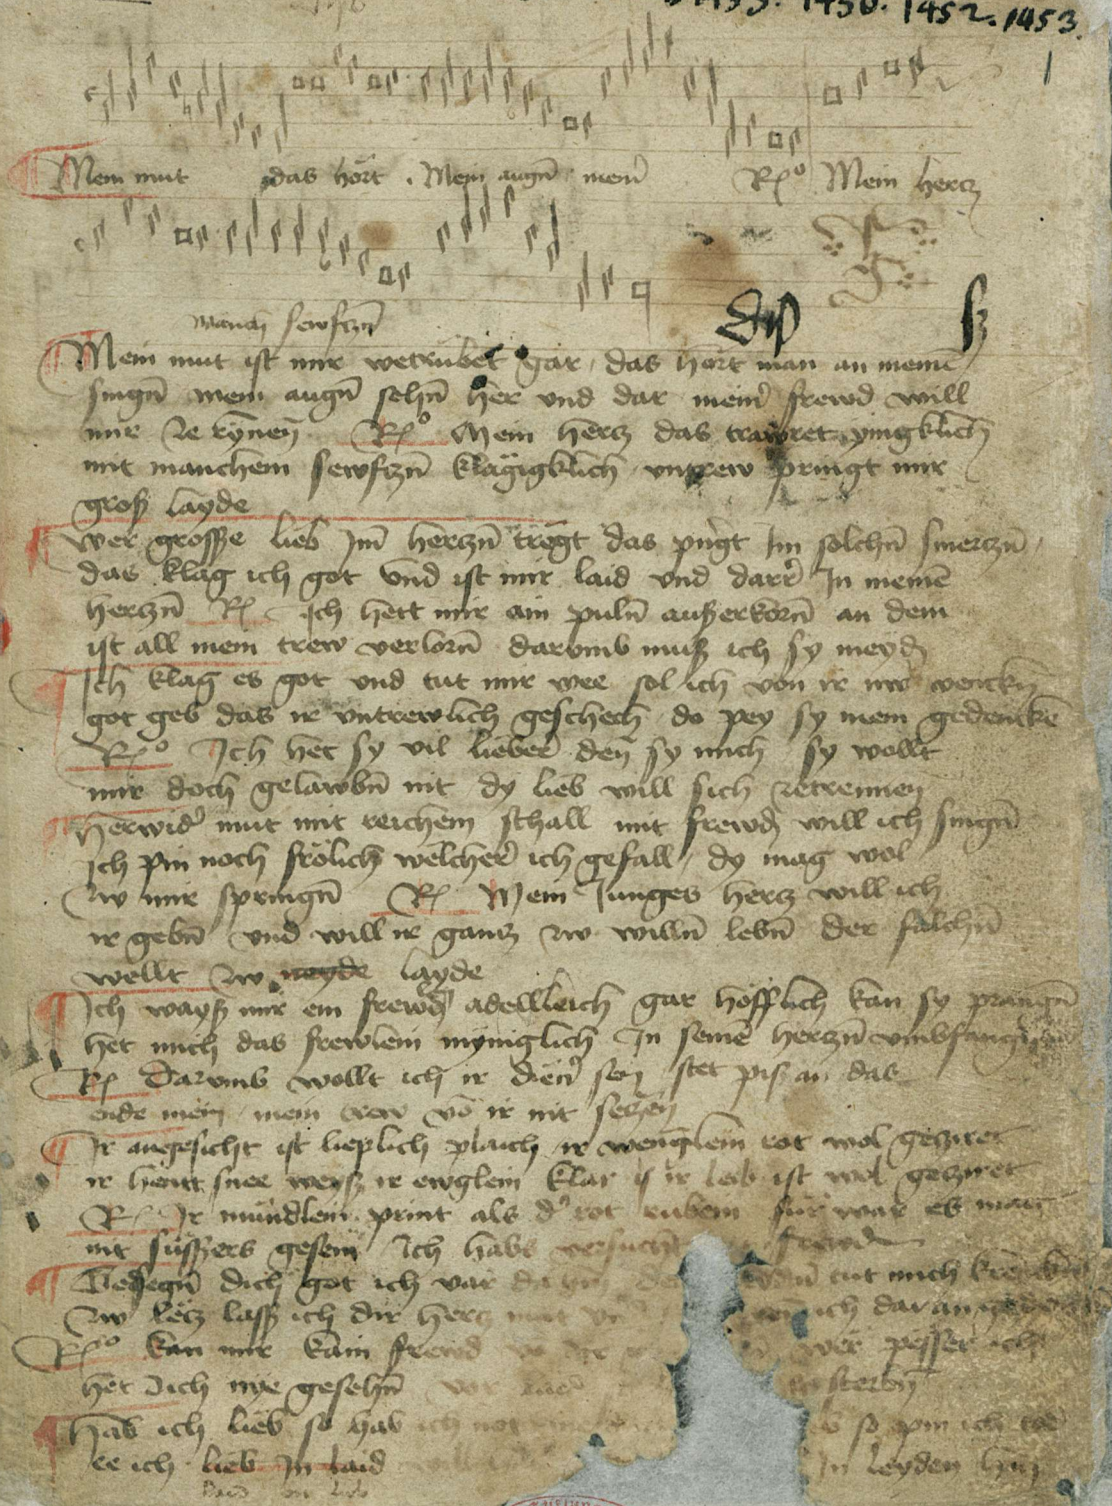 1433. 1450. 1452. 1453.
1
Mein mut das hört . Mein augñ meinʼ R͛º Mein hercz
manch sewfczñ
Mein mut ist mir petrübet gar das hört man an meinē
singñ mein augñ sehñ her vnd dar meinʼ frewd will
mir zerynneñ R͛º Mein hercz das trawret ynigklich
mit manchem sewfczñ klägigklich vntrew pringt mir
groß layde
wer grosse lieb Im herczñ tregt das pringt Im solchñ smerczñ
das klag ich got vnd ist mir laid vnd darʼ In meinē
herczñ R͛ Ich hett mir ain pulñ außerkorñ an dem
ist all mein trew verlorñ darvmb muß ich sy meydñ
Ich klag es got vnd tut mir wee sol ich von ir
got geb das ir vntrewlich geschech do pey sy mein gedenckē
R͛º Ich het sy vil lieber den sy mich sy wollt
mir doch gelawbñ nit dy lieb will sich zetrennen
herwidʼ mut mit reichem schall mit frewdñ will ich singñ
Ich pin noch frölich welcherʼ ich gefall dy mag wol
zw mir springñ R͛ Mein Junges hercz will ich
ir gebñ vnd will ir gancz zw willñ lebñ der falschñ
wellt zw neyde layde
Ich wayß mir ein frewlñ adellleich gar höfflich kan sy prangñ
het mich das frewlein myniglich In seinē herczñ vmbfangñ
R͛ Darvmb wollt ich ir dienʼ sein stet piß an das
ende mein mein trew vō ir nit seczen
Ir angesicht ist lieplich plaich ir wenglein rot wol gecziret
ir hentt snee weyß ir ewglein klar ir leib ist wol gecziret
R͛ Ir mündlein print als dʼ rot rubein für war es mag
nit süssers gesein Ich habs versucht frewd
Gesegñ dich got ich var dahin tut mich krenckñ
zw lecz lass ich dir hercz mut ich dar an gedenck
R͛º kan mir kain frewd wer pesser ich
het dich nye gesehñ sterbñ
hab ich lieb so hab ich not so pin ich tod
ee ich lieb In laid In leyden